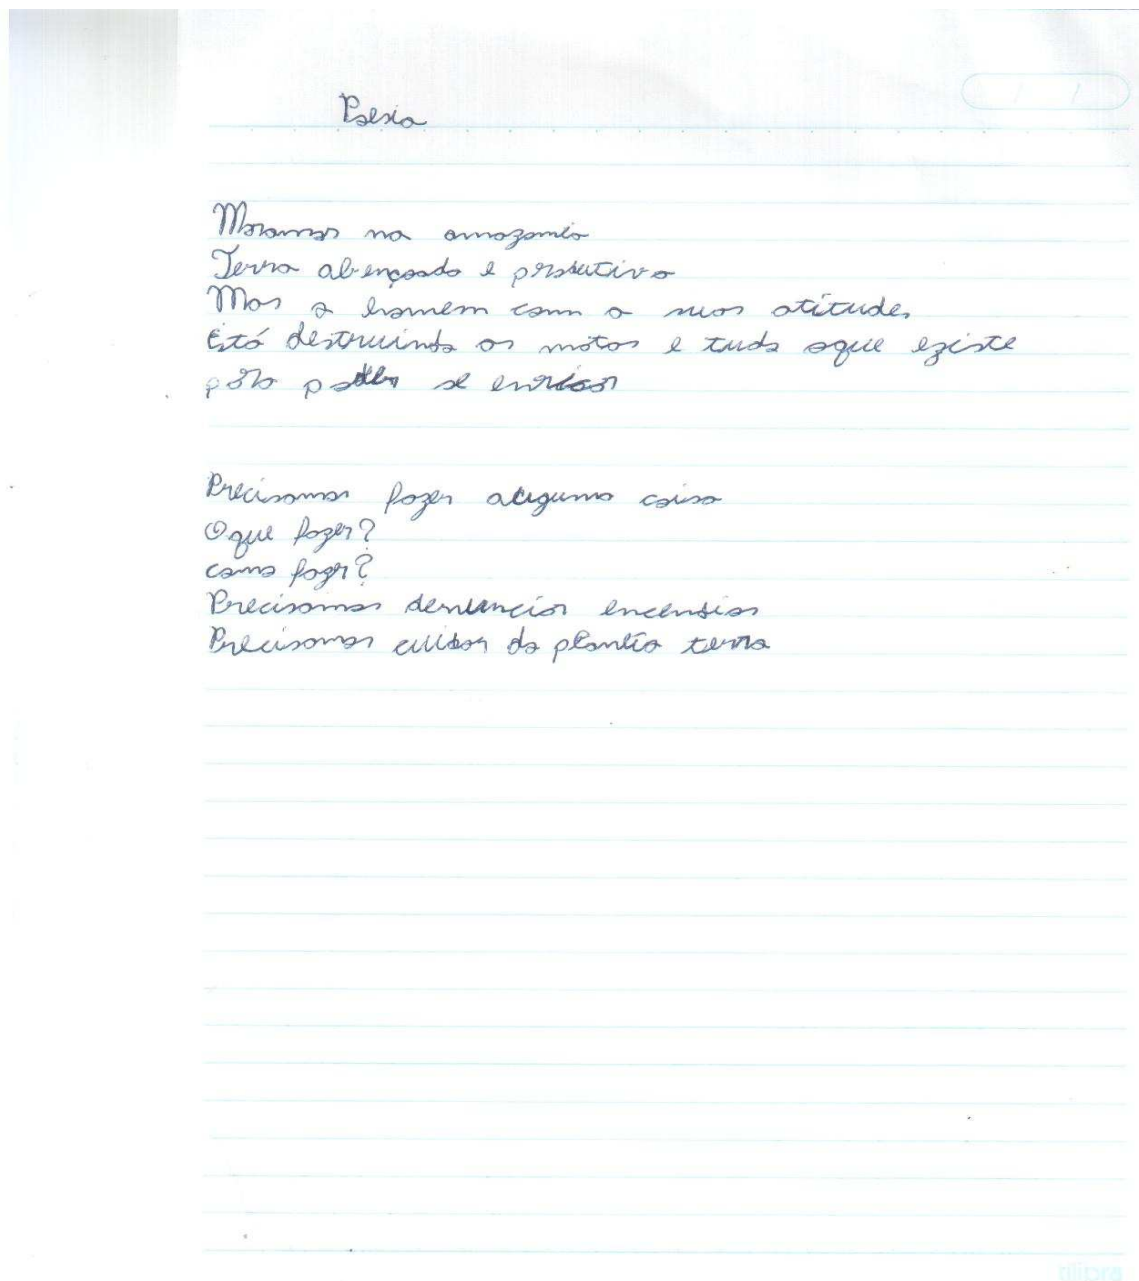 Poesia
Moramos na amozomia
Terra abençoada e produtiva
Mas o homem com a suas atitudes
Está destruindo as matas e tudo oque eziste
para poder se enricar
Precisamos fazer aliguma coisa
O que fazer?
como fazer?
Precisamos denunciar encendios
Precisamos cuidar do plantio terra
tilibra